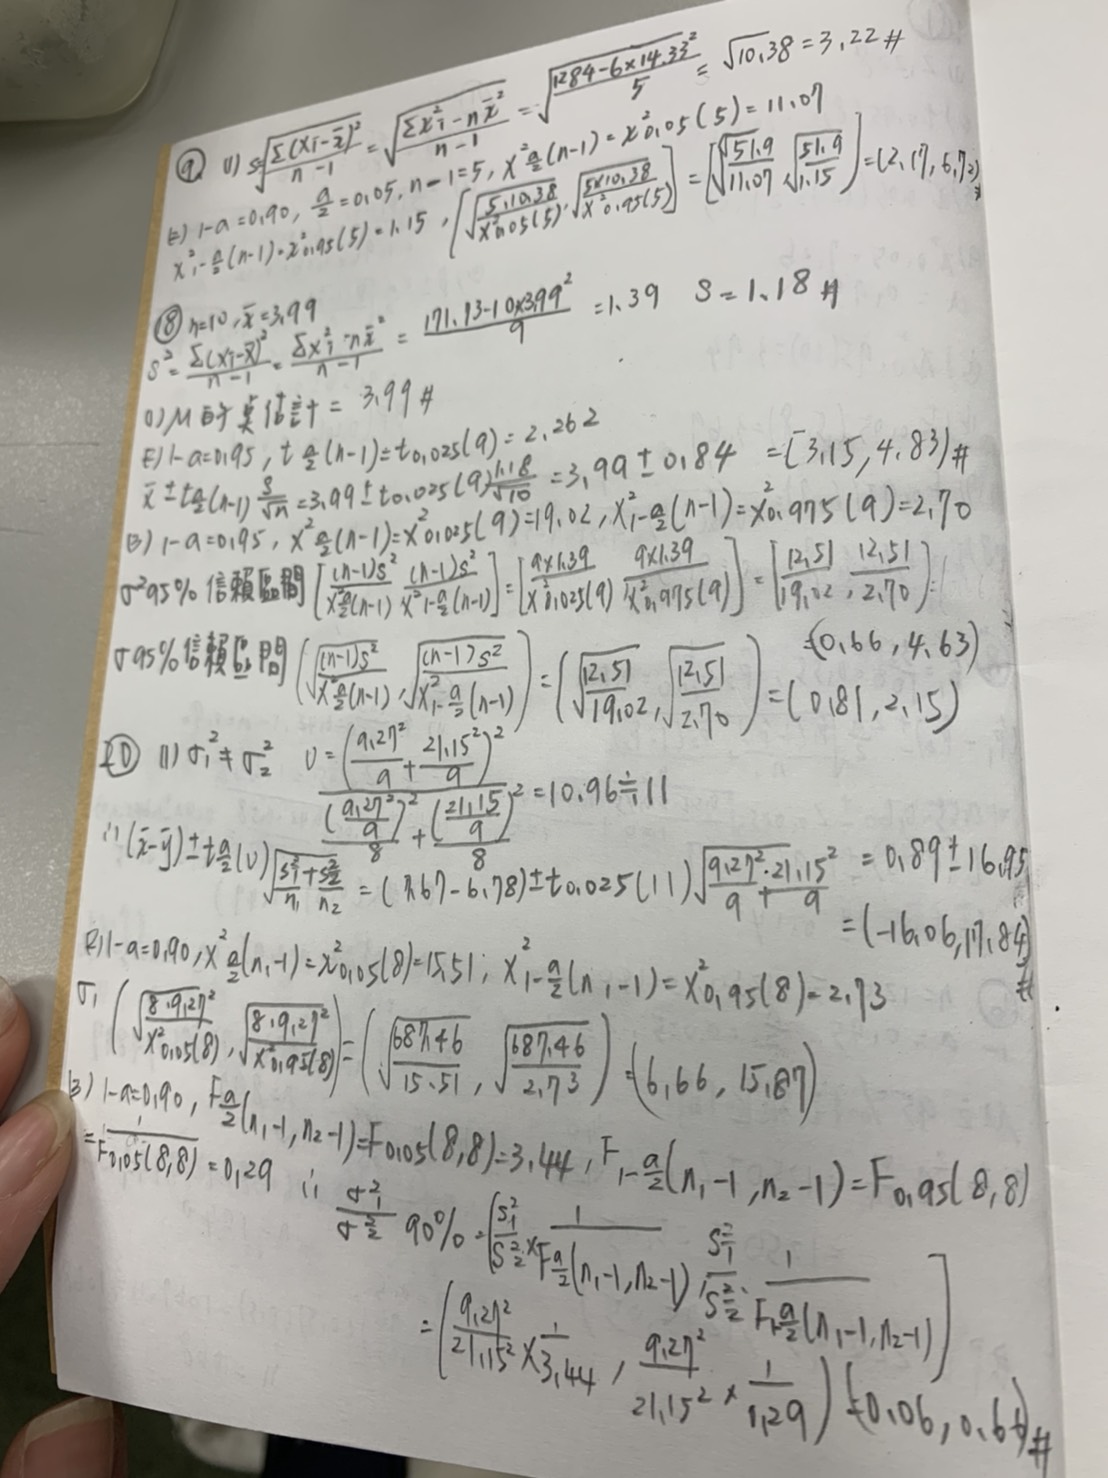 ⑨ (1) s=√(Σ(xi-x̄)²/(n-1)) = √((Σxi²-nx̄²)/(n-1)) = √((1284-6×14.33²)/5) = √10.38 = 3.22 #
(2) 1-a=0.90, a/2=0.05, n-1=5, x²a/2(n-1)=x²0.05(5)=11.07
x²1-a/2(n-1)=x²0.95(5)=1.15, [√(5.10.38/x²0.05(5)), √(5×10.38/x²0.95(5))] = [√(51.9/11.07), √(51.9/1.15)] = (2.17, 6.72) #
⑱ n=10, x̄=3.99
s²=Σ(xi-x̄)²/(n-1) = (Σxi²-nx̄²)/(n-1) = (171.73-10×3.99²)/9 = 1.39 S=1.18 #
(1) M的點估計 = 3.99 #
(2) 1-a=0.95, t a/2(n-1)=t0.025(9)=2.262
x̄±t a/2(n-1) s/√n = 3.99±t0.025(9) 1.18/√10 = 3.99±0.84 = [3.15, 4.83) #
(3) 1-a=0.95, x²a/2(n-1)=x²0.025(9)=19.02, x²1-a/2(n-1)=x²0.975(9)=2.70
σ²95%信賴區間 [(n-1)s²/x²a/2(n-1), (n-1)s²/x²1-a/2(n-1)] = [9×1.39/x²0.025(9), 9×1.39/x²0.975(9)] = [12.51/19.02, 12.51/2.70] =
(0.66, 4.63)
σ95%信賴區間 (√((n-1)s²/x²a/2(n-1)), √((n-1)s²/x²1-a/2(n-1))) = (√(12.51/19.02), √(12.51/2.70)) = (0.81, 2.15)
⑳ (1) σ1²≠σ2² υ = (9.27²/9+21.15²/9)² / ((9.27²/9)²/8+(21.15/9)²/8) = 10.96≒11
∴(x̄-ȳ)±t a/2(υ)√(s1²/n1+s2²/n2) = (7.67-6.78)±t0.025(11)√(9.27²/9+21.15²/9) = 0.89±16.95
= (-16.06, 17.84) #
(2) 1-a=0.90, x²a/2(n1-1)=x²0.05(8)=15.51; x²1-a/2(n1-1)=x²0.95(8)=2.73
σ1 (√(8.9.27²/x²0.05(8)), √(8.9.27²/x²0.95(8))) = (√(687.46/15.51), √(687.46/2.73)) = (6.66, 15.87)
(3) 1-a=0.90, Fa/2(n1-1, n2-1)=F0.05(8,8)=3.44, F1-a/2(n1-1, n2-1)=F0.95(8,8)
=1/F0.05(8,8)=0.29 ∴ σ1²/σ2² 90% = [s1²/s2²×1/Fa/2(n1-1, n2-1), s1²/s2²·1/F1-a/2(n1-1, n2-1)]
= (9.27²/21.15²×1/3.44, 9.27²/21.15²×1/0.29) = (0.06, 0.66) #